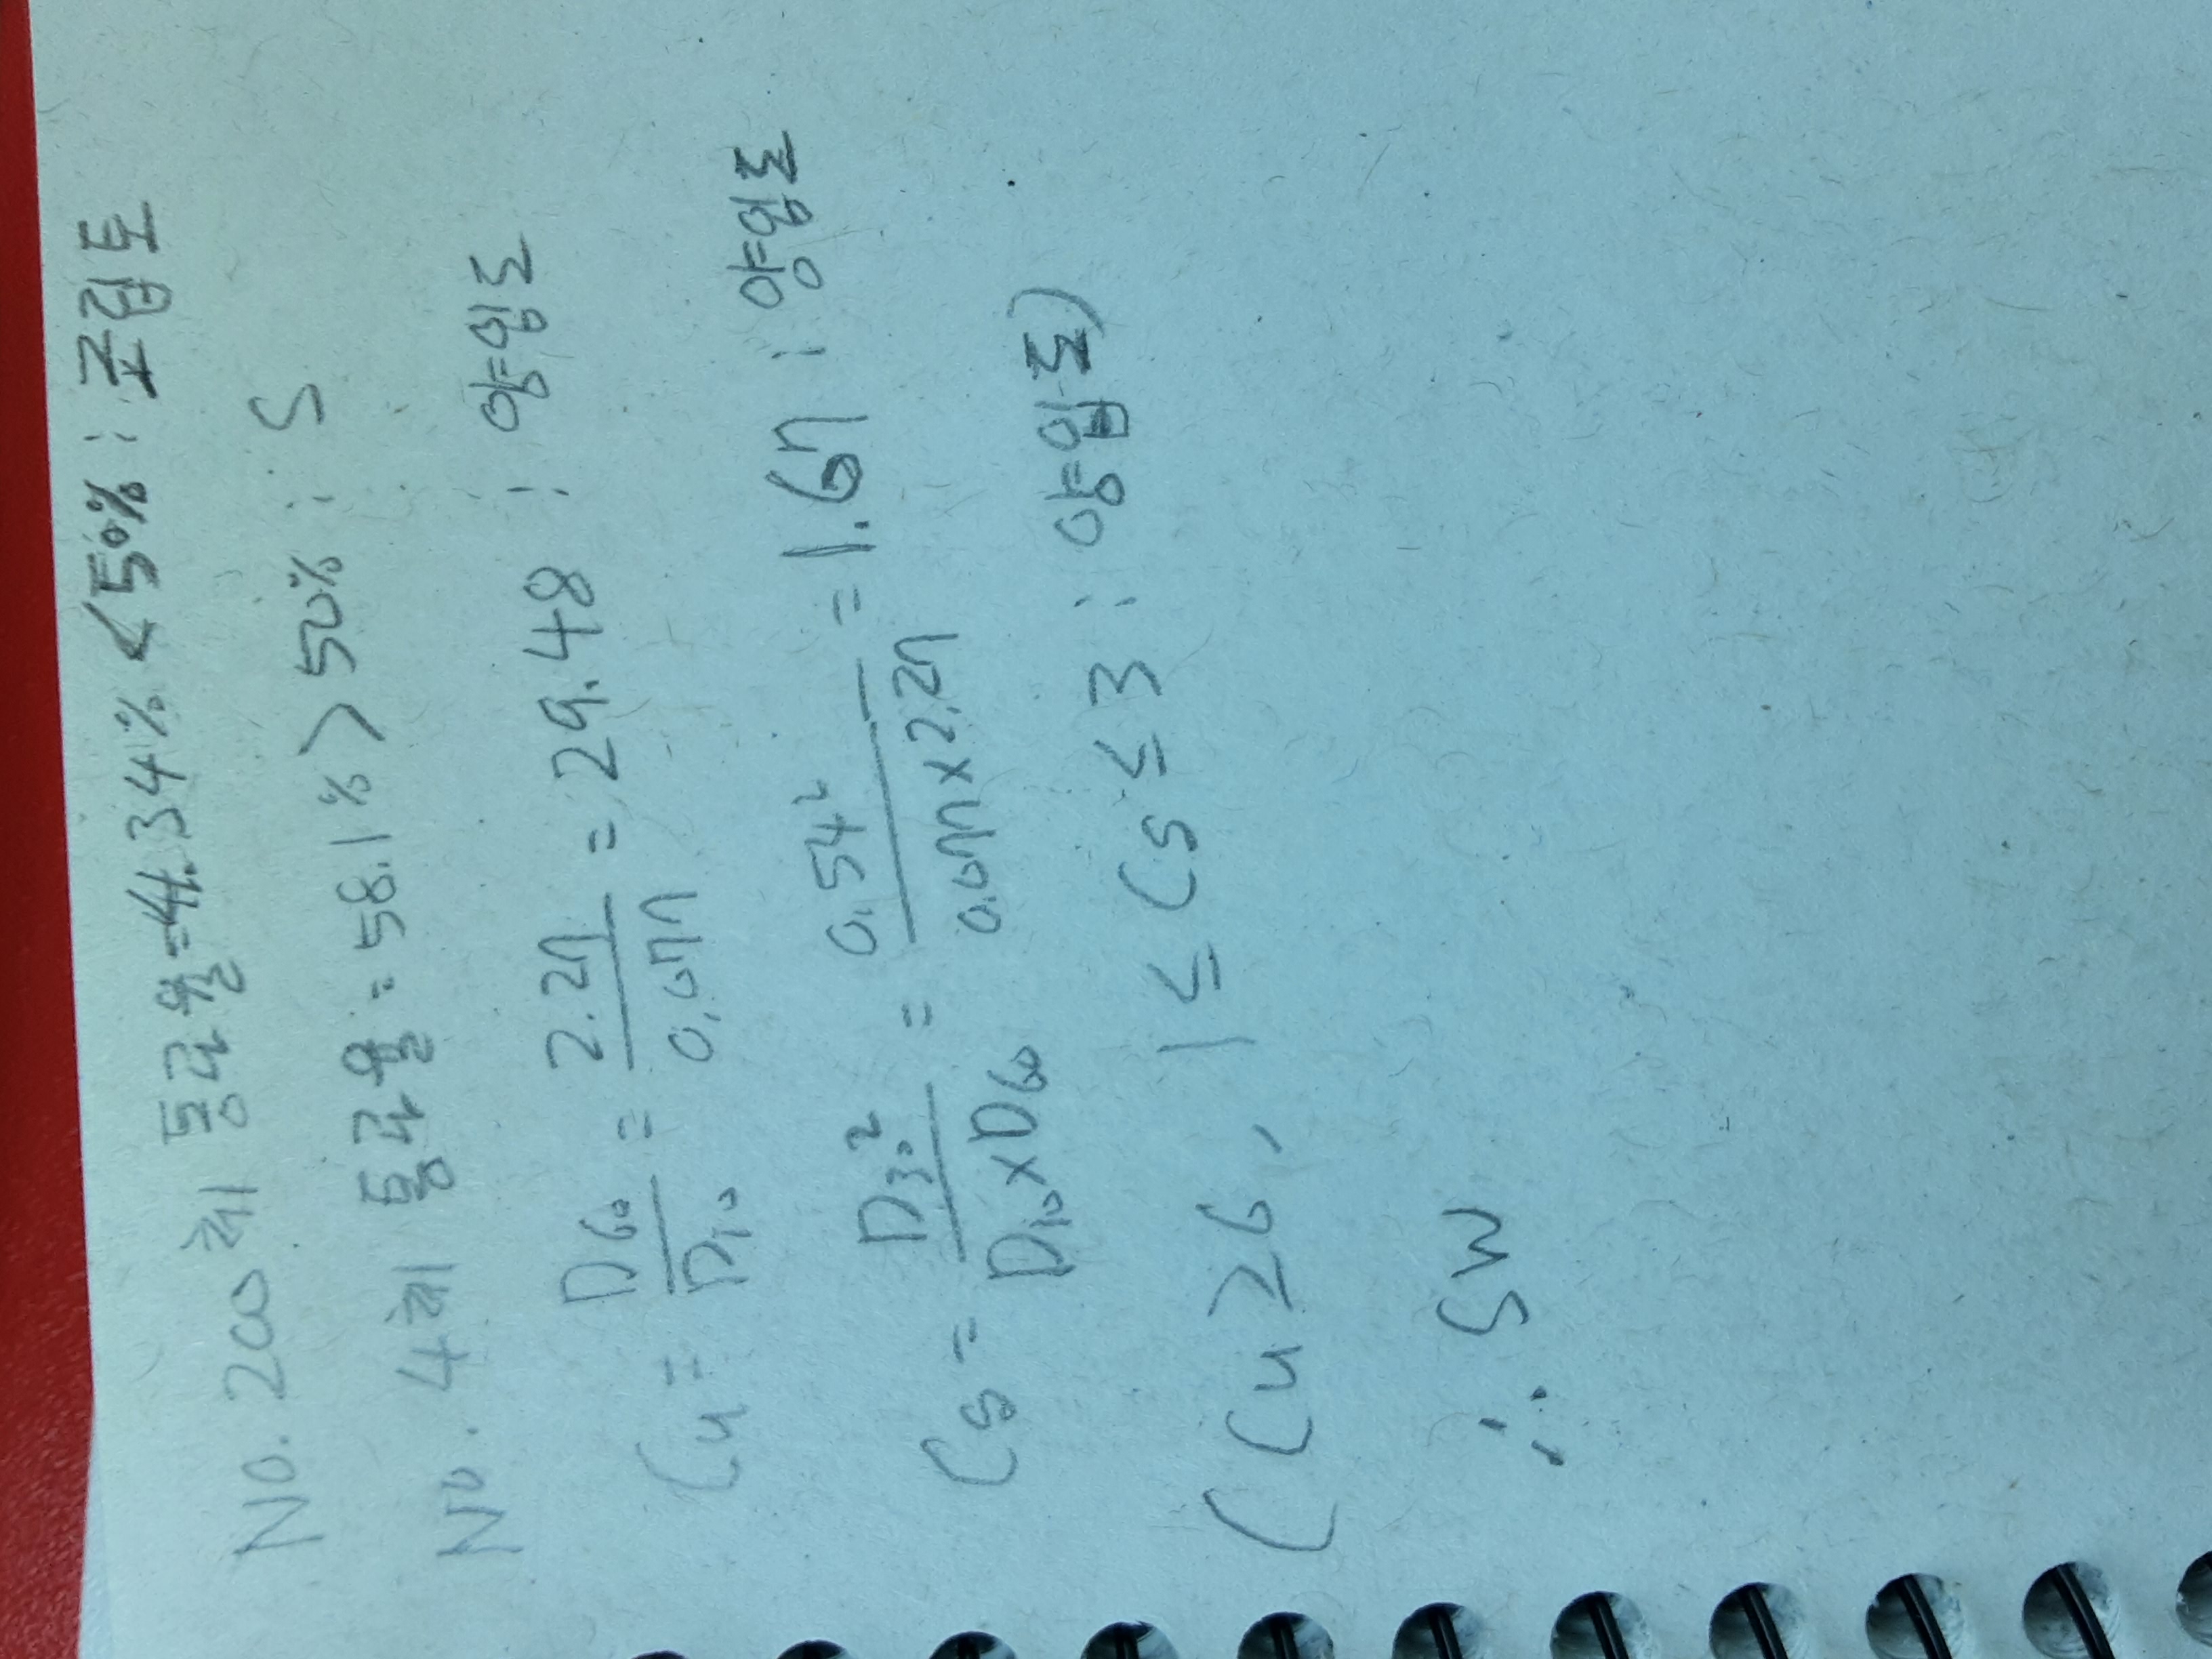 No. 200체 통과율=4.34% < 50% : 조립토
No. 4체 통과율=58.1% > 50% : S
Cu = D60/D10 = 2.27/0.077 = 29.48 : 양입도
Cs = D30²/D10×D60 = 0.54²/0.077×2.27 = 1.67 : 양입도
(Cu ≥ 6, 1 ≤ Cs ≤ 3 : 양입도)
∴ SW